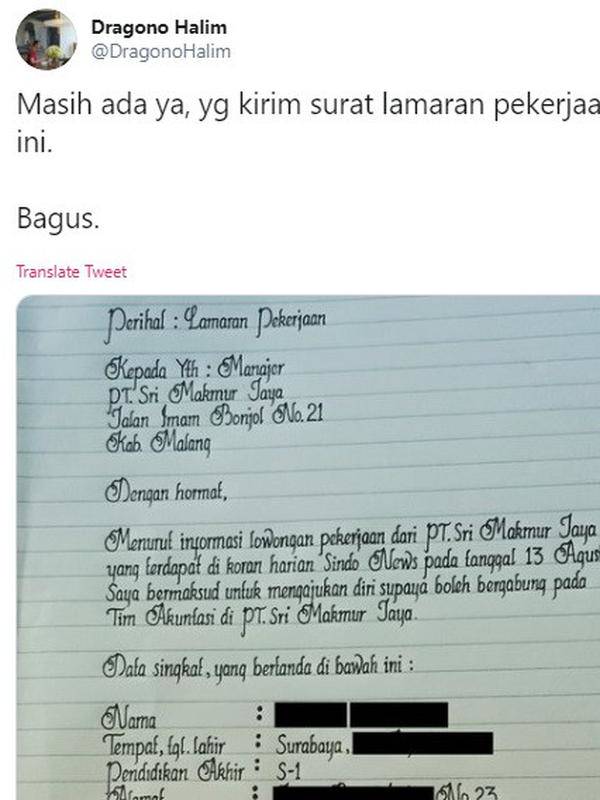 Dragono Halim
@DragonoHalim
Masih ada ya, yg kirim surat lamaran pekerjaa
ini.
Bagus.
Translate Tweet
Perihal : Lamaran Pekerjaan
Kepada Yth : Manajer
PT. Sri Makmur Jaya
Jalan Imam Bonjol No. 21
Kab. Malang
Dengan hormat,
Menurut informasi lowongan pekerjaan dari PT. Sri Makmur Jaya
yang terdapat di koran harian Sindo News pada tanggal 13 Agus
Saya bermaksud untuk mengajukan diri supaya boleh bergabung pada
Tim Akuntasi di PT. Sri Makmur Jaya.
Data singkat, yang bertanda di bawah ini :
Nama :
Tempat, tgl. lahir : Surabaya,
Pendidikan Akhir : S-1
Alamat : No. 23